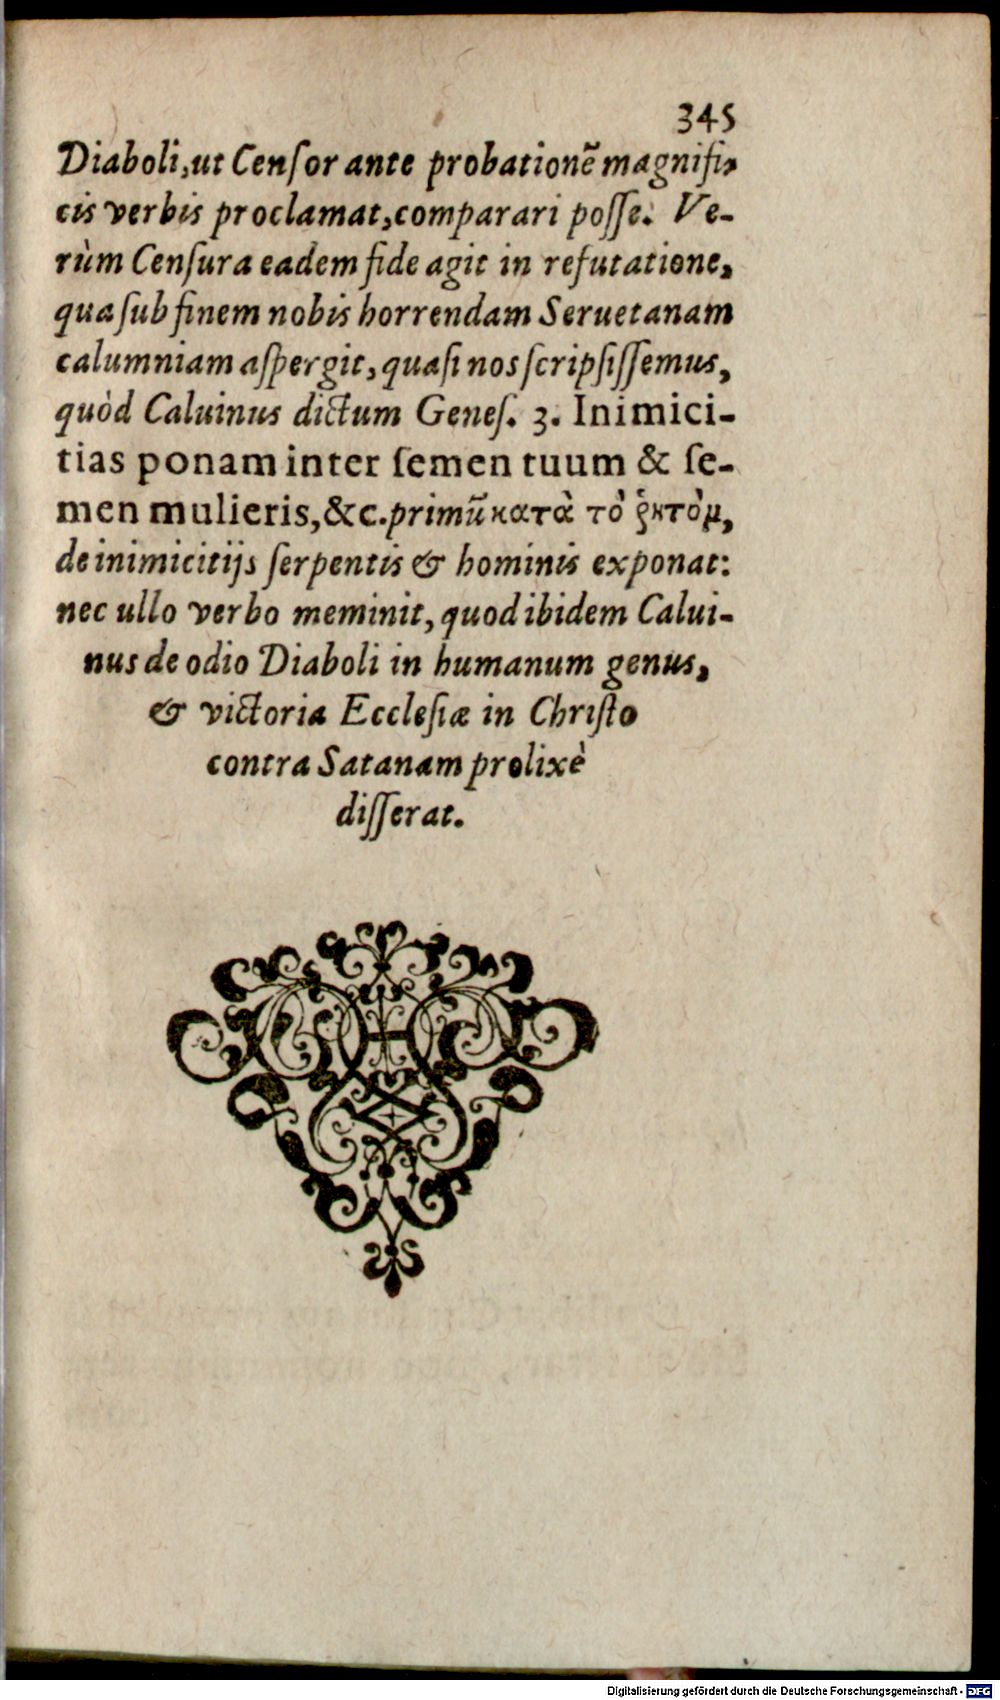 345
Diaboli, ut Cenſor ante probationē magnifi-
cis verbis proclamat, comparari poſſe. Ve-
rùm Cenſura eadem fide agit in refutatione,
qua ſub finem nobis horrendam Seruetanam
calumniam aſpergit, quaſi nos ſcripſiſſemus,
quòd Caluinus dictum Geneſ. 3. Inimici-
tias ponam inter ſemen tuum & ſe-
men mulieris, &c. primū κατὰ τὸ ῥητὸμ,
de inimicitijs ſerpentis & hominis exponat:
nec ullo verbo meminit, quod ibidem Calui-
nus de odio Diaboli in humanum genus,
& victoria Eccleſiæ in Chriſto
contra Satanam prolixè
diſſerat.
Digitalisierung gefördert durch die Deutsche Forschungsgemeinschaft - DFG